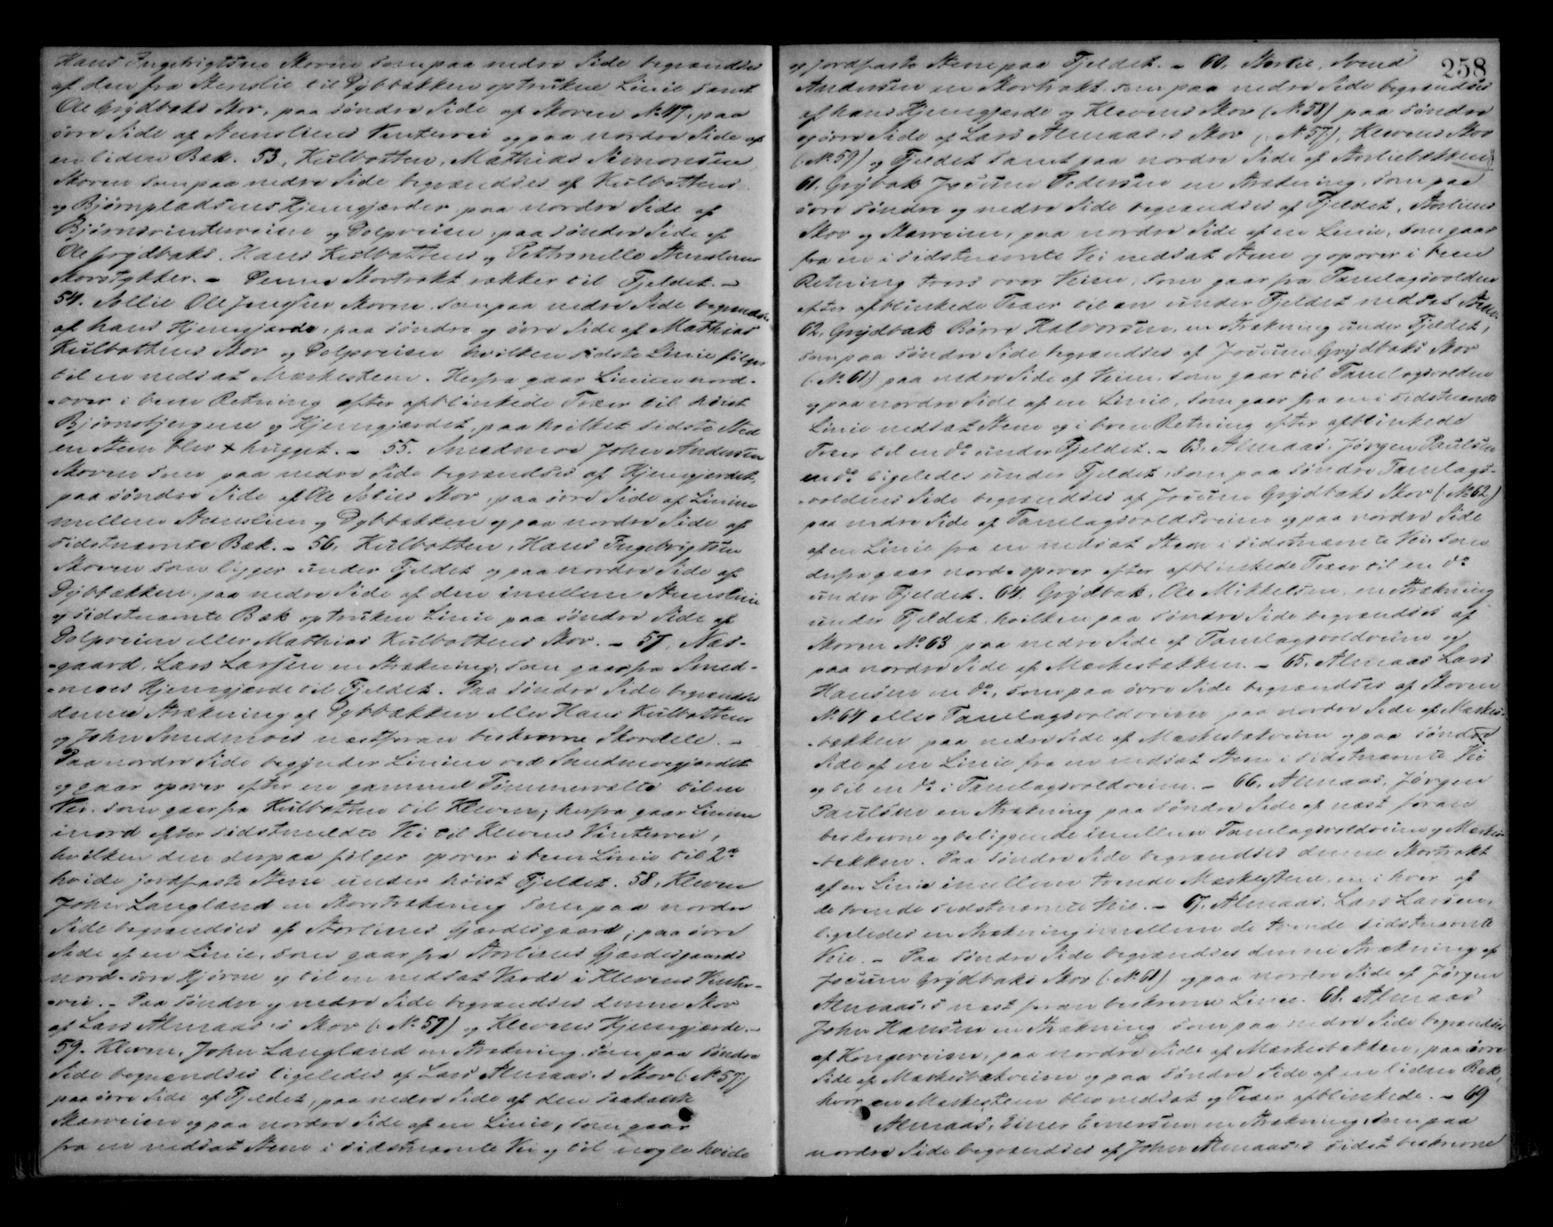 Hans Ingebrigtsen Skoven som paa nedre Side begrændses
af den fra Stenslie til Dybbækken optrukne Linie samt
Ole Grydbaks Skov, paa søndre Side af Skoven No 47, paa
øvre Side af Stensliens Vintervei og paa nordre Side af
en liden Bæk. 53, Kulbotten, Mathias Simonsen
Skoven som paa nedre Side begrændses af Kulbottens
og Bjørnpladsens Hjemgjærder paa nordre Side af
Bjørnsvinterveien og Dolpveien, paa søndre Side af
Ole Grydbaks, Hans Kulbottens og Pettronelle Stensliens
Skovstykker. – Denne Skovtrakt rækker til Fjeldet. –
54. Sollie Ole Jensen Skoven som paa nedre Side begrændses
af hans Hjemgjærde, paa søndre og øvre Side af Mathias
Kulbottens Skov og Dolpveien hvilken sidste Linie følger
til en nedsat Mærkesteen. Herfra gaar Linien nord-
-over i benn Retning efter afblinkede Træer til høist
Bjørnsbjergene og Hjemgjærdet, paa hvilket sidste Sted
en Steen blev + hugget. – 55. Smedmoe John Andersen
Skoven som paa nedre Side begrændses af Hjemgjærdet,
paa søndre Side af Ole Solies Skov, paa øvre Side af Linien
mellem Stenslien og Dybbækken og paa nordre Side af
sidstnævnte Bæk. – 56, Kulbotten, Hans Ingebrigtsen
Skoven som ligger under Fjeldet og paa nordre Side af
Dybbækken, paa nedre Side af den imellem Stenslien
og sidstnævnte Bæk optrukne Linie paa søndre Side af
Dolpveien eller Mathias Kulbottens Skov. – 57, Næs-
-gaard, Lars Larsen en Strækning, som gaar fra Smed-
-moes Hjemgjærde til Fjeldet. Paa søndre Side begrændses
denne Strækning af Dybbækken eller Hans Kulbottens
og John Smedmoes næstforan beskrevne Skovdele. –
Paa nordre Side begynder Linien ved Smedmoegjærdet
og gaar opover efter en gammel Tømmervælte til en
Vei, som gaar fra Kulbotten til Kleven; herfra gaar Linien
i nord efter sidstmeldte Vei til Klevens Vintervei,
hvilken den derpaa følger opover i benn Linie til 2de
hvide jordfaste Stene under høist Fjeldet. 58, Kleven
John Langland en Skovstrækning som paa nordre
Side begrændses af Storliens Gjærdesgaard, paa øvre
Side af en Linie, som gaar fra Storliens Gjærdesgaards
nord-øvre Hjørne og til en nedsat Varde i Klevens Vinter-
-vei. – Paa søndre og nedre Side begrændses denne Skov
af Lars Almaas's Skov (No 57) og Klevens Hjemgjærde. –
59. Kleven, John Langland en Strækning som paa søndre
Side begrændses ligeledes af Lars Almaas's Skov (No 57)
paa øvre Side af Fjeldet, paa nedre Side af den saakaldte
Skarveien og paa nordre Side af en Linie, som gaar
fra en nedsat Steen i sidstnævnte Vei og til nogle hvide
258
og jordfaste Stene paa Fjeldet. – 60, Storlie, Svend
Andersen en Skovtrakt som paa nedre Side begrændses
af hans Hjemgjærde og Klevens Skov (No 58) paa søndre
og øvre Side af Lars Almaas's Skov (No 57), Klevens Skov
(No 59) og Fjeldet samt paa nordre Side af Storliebækken,
61. Grydbak Jocum Pedersen en Strækning, som paa
øvre søndre og nedre Side begrændses af Fjeldet, Storliens
Skov og Skarveien, paa nordre Side af en Linie, som gaar
fra en i sidstnævnte Vei nedsat Steen og opover i benn
Retning tvers over Veien, som gaar fra Tanlagsvolden
efter afblinkede Træer til en under Fjeldet nedsat Steen.
62, Grydbak Børre Halvorsen, en Strækning under Fjeldet,
som paa søndre Side begrændses af Jocum Grydbaks Skov
(No 61) paa nedre Side af Veien, som gaar til Tanlagsvolden
og paa nordre Side af en Linie, som gaar fra en i sidstnævnte
Linie nedsat Steen og i benn Retning efter afblinkede
Træer til en do under Fjeldet. – 63, Almaas, Jørgen Paulsen
en do ligeledes under Fjeldet, som paa søndre Tanlags-
-voldens Side begrændses af Jocum Grydbaks Skov (No 62)
paa nedre Side af Tanlagsvoldveien og paa nordre Side
af en Linie fra en nedsat Steen i sidstnævnte Vei, som
derfra gaar nord-opover efter afblinkede Træer til en do
under Fjeldet. 64, Grydbak, Ole Mikkelsen, en Strækning
under Fjeldet, hvilken paa søndre Side begrændses af
Skoven No 63 paa nedre Side af Tanlagsvoldveien og
paa nordre Side af Mærkesbækken. – 65. Almaas Lars
Hansen en do, som paa øvre Side begrændses af Skoven
No 64 eller Tanlagsvoldveien paa nordre Side af Mærkes-
-bækken paa nedre Side af Mærkesbækveien og paa søndre
Side af en Linie fra en nedsat Steen i sidstnævnte Vei
og til en do i Tanlagsvoldveien. – 66. Almaas, Jørgen
Paulsen en Strækning paa søndre Side af næst foran
beskrevne og beliggende imellem Tanlagsvoldveien og Mærkes-
-bækken. Paa søndre Side begrændses denne Skovtrakt
af en Linie imellem tvende Mærkestene, en i hver af
de tvende sidstnævnte Veie. – 67, Almaas, Lars Larsen,
ligeledes en Strækning imellem de tvende sidstnævnte
Veie. – Paa søndre Side begrændses denne Strækning af
Jocum Grydbaks Skov (No 61) og paa nordre Side af Jørgen
Almaas's næst foran beskrevne Linie. 68. Almaas
John Hansen en Strækning som paa nedre Side begrændses
af Kongeveien, paa nordre Side af Mærkesbækken, paa øvre
Side af Mærkesbækveien og paa søndre Side af en liden Bæk,
hvor en Mærkesteen blev nedsat og Træer afblinkede. – 69
Almaas, Einer Einersen, en Strækning, som paa
nordre Side begrændses af John Almaas's sidst beskrevne